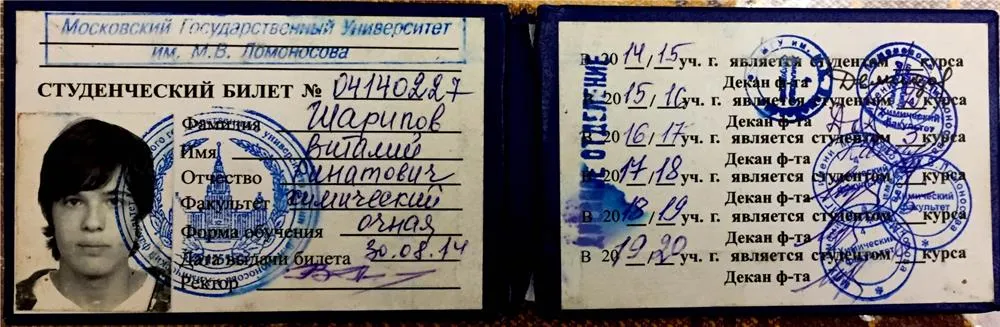 Московский Государственный Университет
им. М.В. Ломоносова
СТУДЕНЧЕСКИЙ БИЛЕТ № 04140227
Фамилия Шарипов
Имя Виталий
Отчество Ринатович
Факультет химический
Форма обучения очная
Дата выдачи билета 30.08.14
Ректор
В 2014/15 уч. г. является студентом курса
Декан ф-та
В 2015/16 уч. г. является студентом курса
Декан ф-та
В 2016/17 уч. г. является студентом курса
Декан ф-та
В 2017/18 уч. г. является студентом курса
Декан ф-та
В 2018/19 уч. г. является студентом курса
Декан ф-та
В 2019/20 уч. г. является студентом курса
Декан ф-та
ОТДЕЛЕНИЕ
Химический
факультет